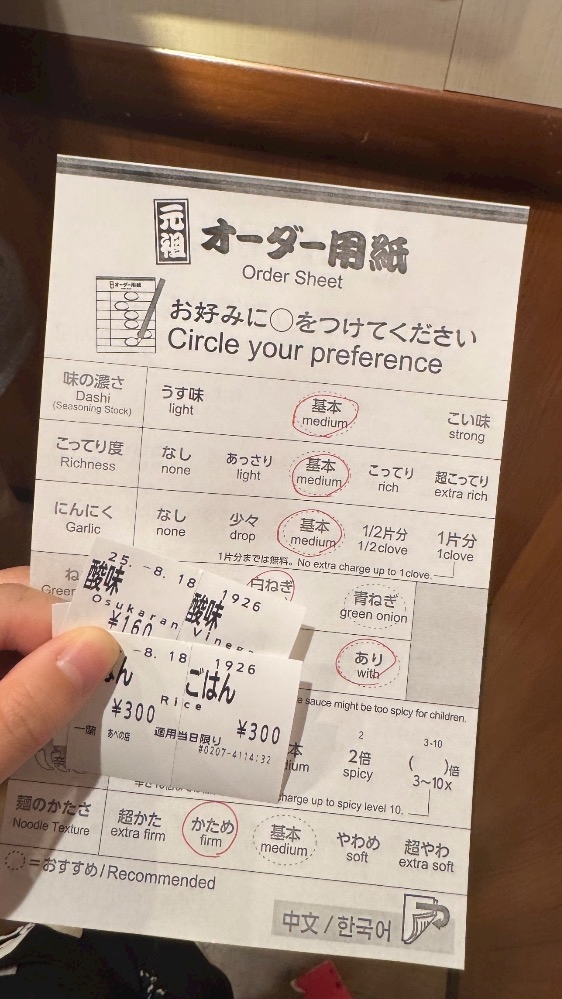 元祖 オーダー用紙
Order Sheet
お好みに○をつけてください
Circle your preference
味の濃さ うす味 基本 こい味
Dashi light medium strong
(Seasoning Stock)
こってり度 なし あっさり 基本 こってり 超こってり
Richness none light medium rich extra rich
にんにく なし 少々 基本 1/2片分 1片分
Garlic none drop medium 1/2clove 1clove
1片分までは無料。No extra charge up to 1clove.
ね 白ねぎ 青ねぎ
Green green onion
25.-8.18 1926
酸味 酸味
Osukaran Vineg
¥160
あり
with
-8.18 1926
ん ごはん
Rice
¥300 ¥300
一蘭 あべの店 適用当日限り
#0207-4114:32
e sauce might be too spicy for children.
本 2 3-10
ium 2倍 ( )倍
spicy 3~10x
harge up to spicy level 10.
麺のかたさ 超かた かため 基本 やわめ 超やわ
Noodle Texture extra firm firm medium soft extra soft
=おすすめ/Recommended
中文/한국어